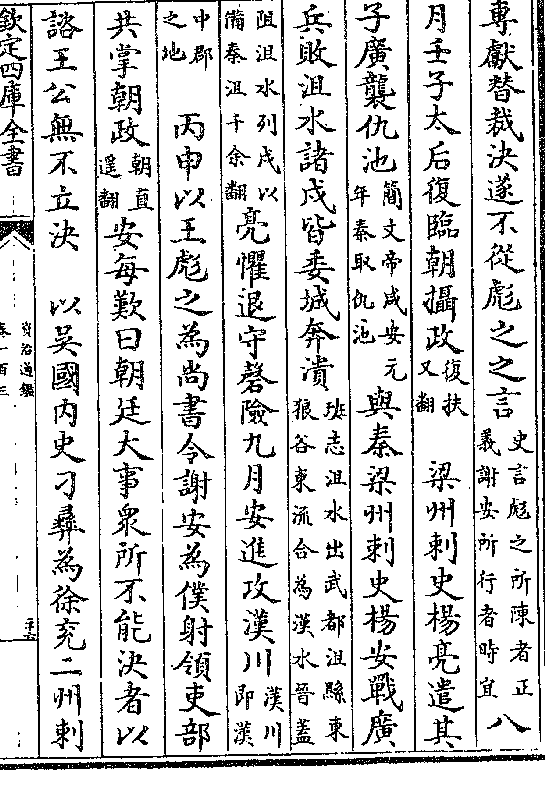 專獻替裁決遂不從彪之之言史言彪之所陳者正義謝安所行者時宜八
月壬子太后復臨朝攝政復扶又翻 梁州刺史楊亮遣其
子廣襲仇池簡文帝咸安元年秦取仇池與秦梁州刺史楊安戰廣
兵敗沮水諸戍皆委城奔潰班志沮水出武都沮縣東狼谷東流合為漢水晉蓋
阻沮水列戍以備秦沮千余翻亮懼退守磬險九月安進攻漢川漢川即漢
中郡之地 丙申以王彪之為尚書令謝安為僕射領吏部
共掌朝政朝直遥翻安每歎曰朝廷大事衆所不能決者以
諮王公無不立決 以吳國内史刁彝為徐兖二州刺
欽定四庫全書
資治通鑑
卷一百三